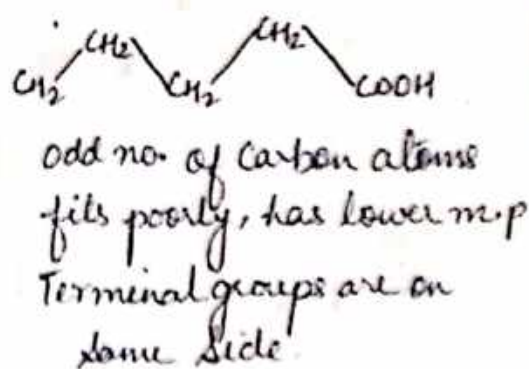 CH2 CH2
CH2 CH2 COOH
odd no. of carbon atoms
fits poorly, has lower m.p
Terminal groups are on
same side